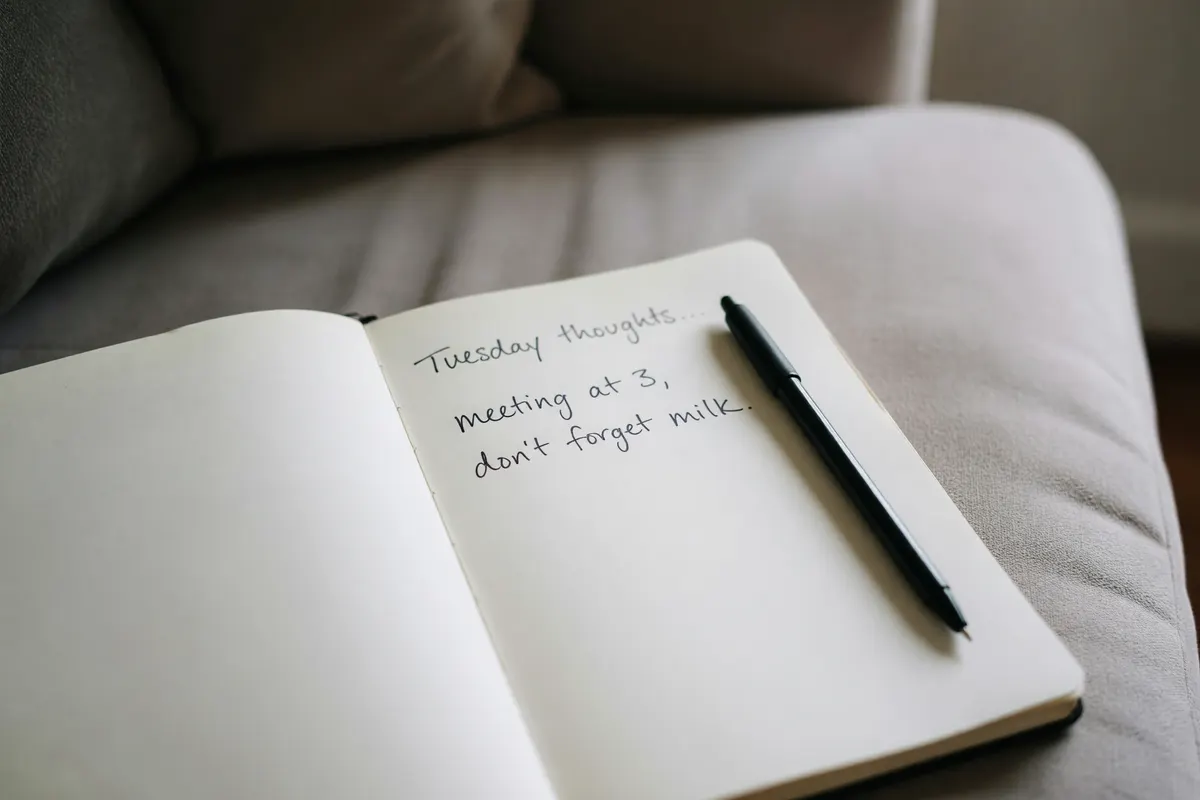 Tuesday thoughts...
meeting at 3,
don't forget milk.